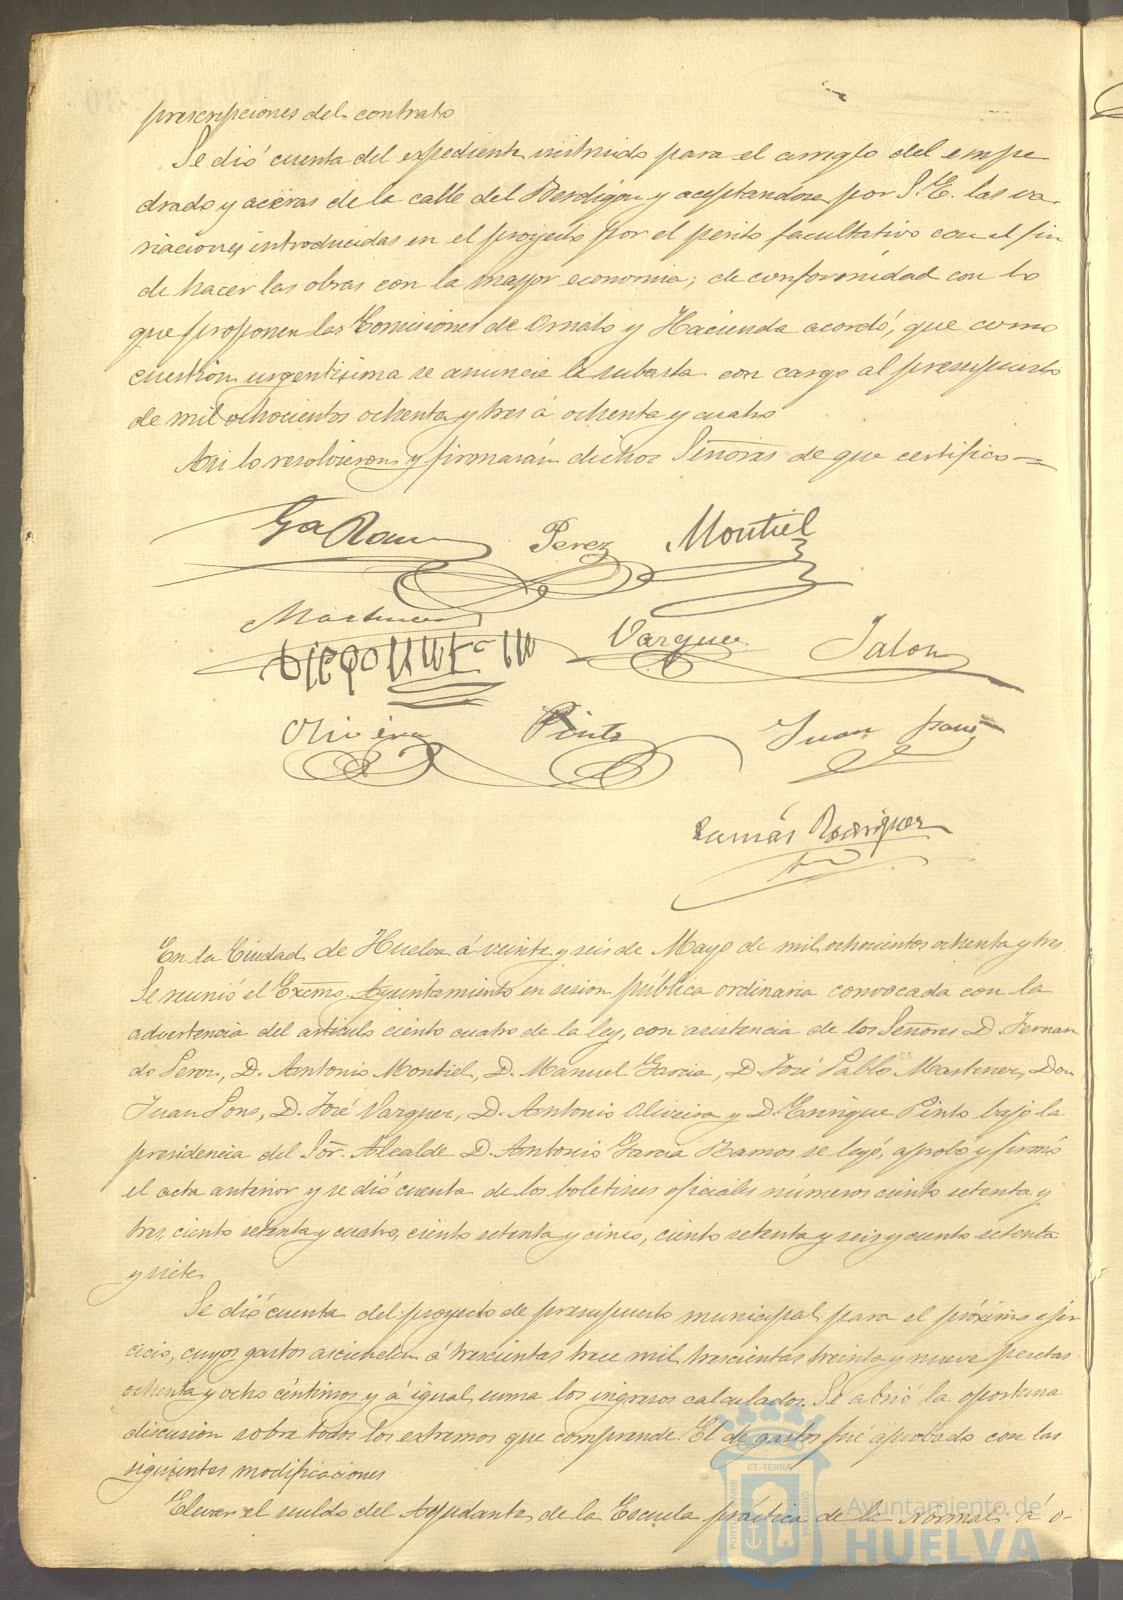 prescripciones del contrato
Se dió cuenta del expediente instruido para el arreglo del empe
drado y aceras de la calle del Berdigon y aceptandose por S. E. las va-
riaciones introducidas en el proyecto por el perito facultativo con el fin
de hacer las obras con la mayor economia; de conformidad con lo
que proponen las Comisiones de Ornato y Hacienda acordó, que como
cuestion urgentisima se anuncie la subasta con cargo al presupuesto
de mil ochocientos ochenta y tres á ochenta y cuatro
Asi lo resolvieron y firmarán dichos Señores de que certifico=
Ga Ramos Perez Montiel
Martinez
Vazquez Jalon
Oliveira Pinto Juan Pons
Tomás Rodriguez
En la Ciudad de Huelva á veinte y seis de Mayo de mil ochocientos ochenta y tres
Se reunió el Excmo. Ayuntamiento en sesion pública ordinaria convocada con la
advertencia del articulo ciento cuatro de la ley, con asistencia de los Señores D. Fernan
do Perez, D. Antonio Montiel, D. Manuel Garcia, D. José Pablo Martinez, Don
Juan Pons, D. José Vazquez, D. Antonio Oliveira y D. Enrique Pinto bajo la
presidencia del Sor. Alcalde D. Antonio Garcia Ramos se leyó, aprobó y firmó
el acta anterior y se dió cuenta de los boletines oficiales números ciento setenta y
tres, ciento setenta y cuatro, ciento setenta y cinco, ciento setenta y seis y ciento setenta
y siete.
Se dió cuenta del proyecto de presupuesto municipal para el próximo ejer
cicio, cuyos gastos ascienden á trescientas trece mil trescientas treinta y nueve pesetas
ochenta y ocho céntimos y á igual suma los ingresos calculados. Se abrió la oportuna
discusion sobre todos los extremos que comprende. El de gastos fué aprobado con las
siguientes modificaciones
Elevar el sueldo del Ayudante de la Escuela práctica de la Normal á o-
Ayuntamiento de
HUELVA